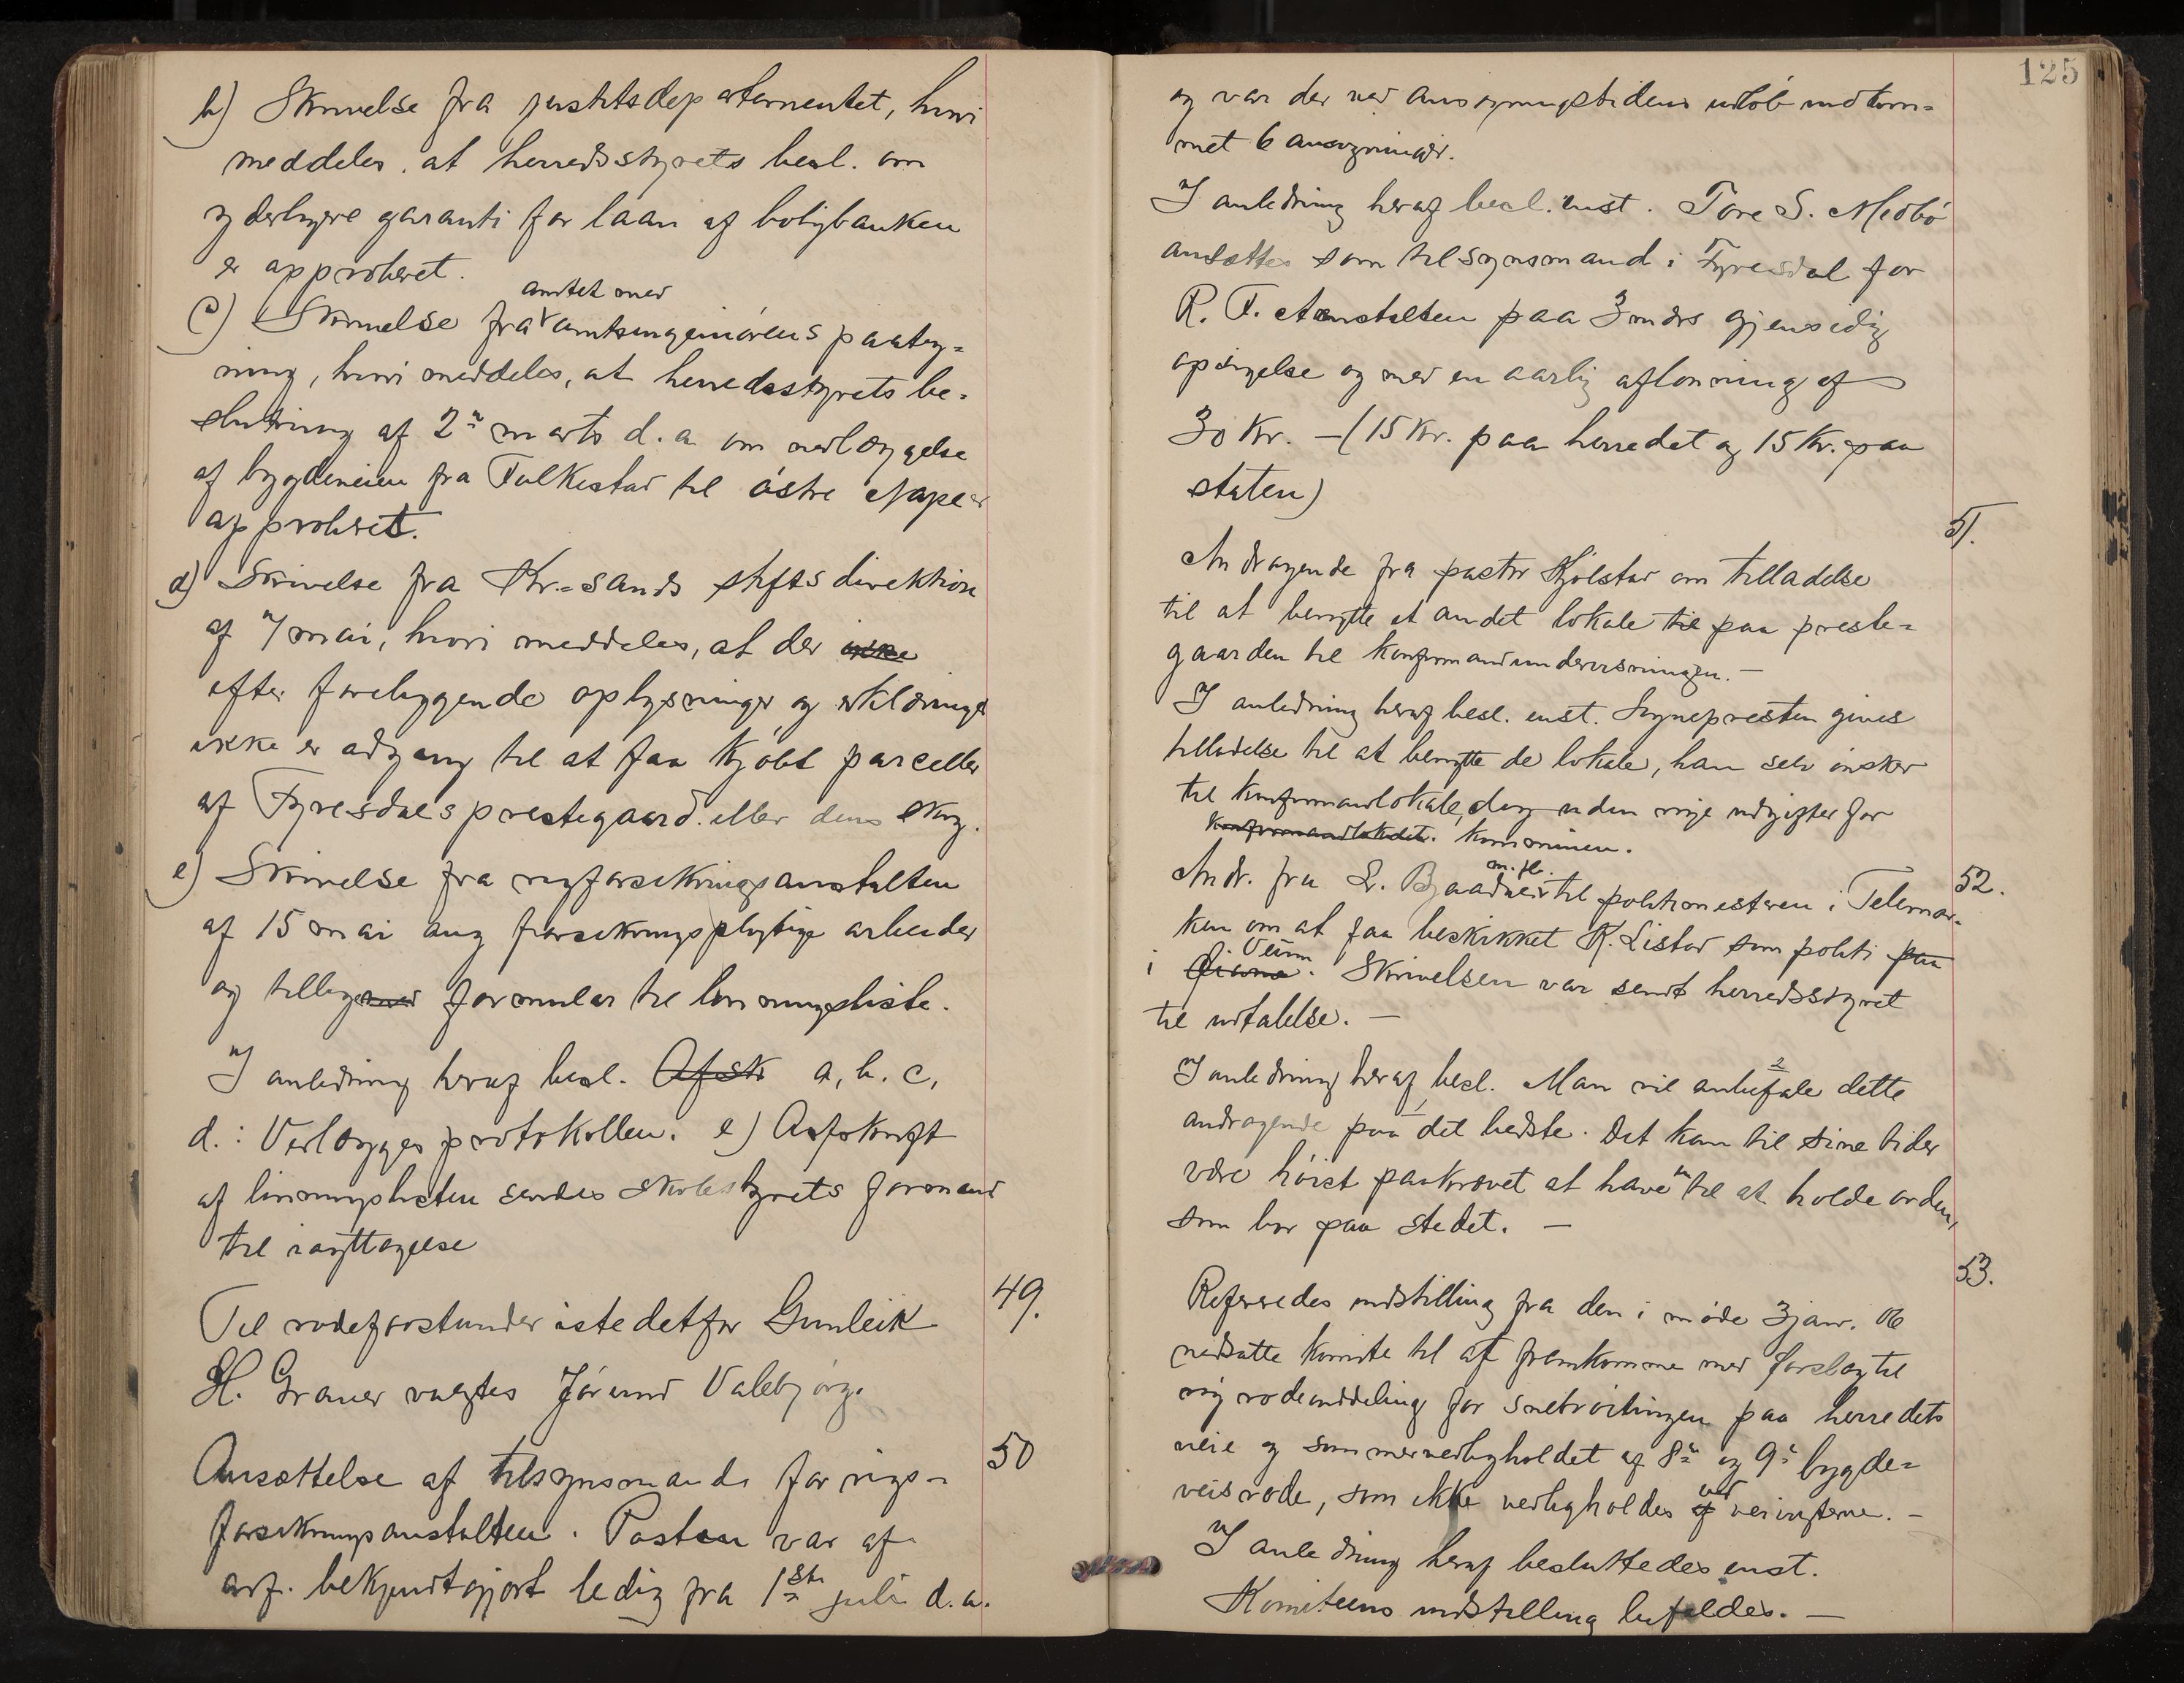 b) Skrivelse fra justitsdepartementet, hvori
meddeles, at herredsstyrets besl. om
yderligere garanti for laan af boligbanken
er approberet.
amtet med
c) Skrivelse fra amtsingeniörens paateg-
ning, hvori meddeles, at herredsstyrets be-
slutning af 2n marts d.a. om nedlæggelse
af bygdeveien fra Fulkestad til östre Nape er
approberet.
d) Skrivelse fra Kr.-sands stiftsdirektion
af 7 mai, hvori meddeles, at der ikke
efter foreliggende oplysninger og erklæringer
ikke er adgang til at faa kjöbt parceller
af Fyresdals prestegaard eller dens skog.
e) Skrivelse fra rigsforsikringsanstalten
af 15 mai ang forsikringspligtige arbeider
og tillige med formular til lönningsliste.
I anledning heraf besl. Afskr a, b. c,
d.: Vedlægges protokollen. e) Afskrift
af lönningslisten sendes skolestyrets formand
til iagttagelse
49.
Til rodeforstander istedetfor Gunleik
H. Graver valgtes Jörund Valebjörg.
50
Ansættelse af tilsynsmand for rigs-
forsikringsanstalten. Posten var af
arf. bekjendtgjort ledig fra 1ste juli d.a.
125
og var der ved ansögningstidens udlöb indkom-
met 6 ansögninger.
I anledning heraf besl. enst. Tore S. Medbö
ansættes som tilsynsmand i Fyresdal for
R. F. Anstalten paa 3 mdrs gjensidig
opsigelse og med en aarlig aflönning af
30 Kr. – (15 Kr. paa herredet og 15 Kr. paa
staten)
51.
Andragende fra pastor Kjölstad om tilladelse
til at benytte et andet lokale til paa preste-
gaarden til konfirmandundervisningen. –
I anledning heraf besl. enst. Sognepresten gives
tilladelse til at benytte de lokale, han selv önsker
til konfirmandlokale, dog uden nye udgifter for
konfirmandlokalet. kommunen.
52.
m. fl.
Andr. fra L. til politimesteren i Telemar-
ken om at faa beskikket K. Listad som politi paa
Veum
i. Skrivelsen var sendt herredsstyret
til udtalelse. –
I anledning heraf besl. Man vil anbefale dette
andragende paa det bedste. Det kan til sine tider
være höist paakrævet at have en til at holde orden,
som bor paa stedet. –
53.
Refereredes indstilling fra den i möde 3 jan. 06
nedsatte komite til at fremkomme med forslag til
ny rodeinddeling for snebröitningen paa herredets
veie og sommervedligholdet af 8de og 9de bygde-
ved
veisrode, som ikke vedligholdes af veivogterne. –
I anledning heraf besluttedes enst.
Komiteens indstilling bifaldes. –